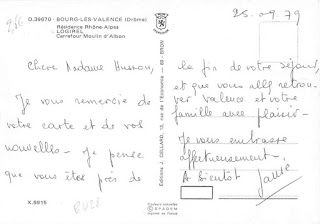 D.39670 - BOURG-LES-VALENCE (Drôme)
Résidence Rhône-Alpes
LOGIREL
Carrefour Moulin d'Albon
25.09.79
Chère Madame
Je vous remercie de
votre carte et de vos
nouvelles - Je pense
que vous êtes près de
X.5915
Editions J. CELLARD, 13, rue de l'Economie - 69 - BRON
la fin de votre séjour,
et que vous allez retrou-
ver Valence et votre
famille avec plaisir -
Je vous embrasse
affectueusement.
A bientôt